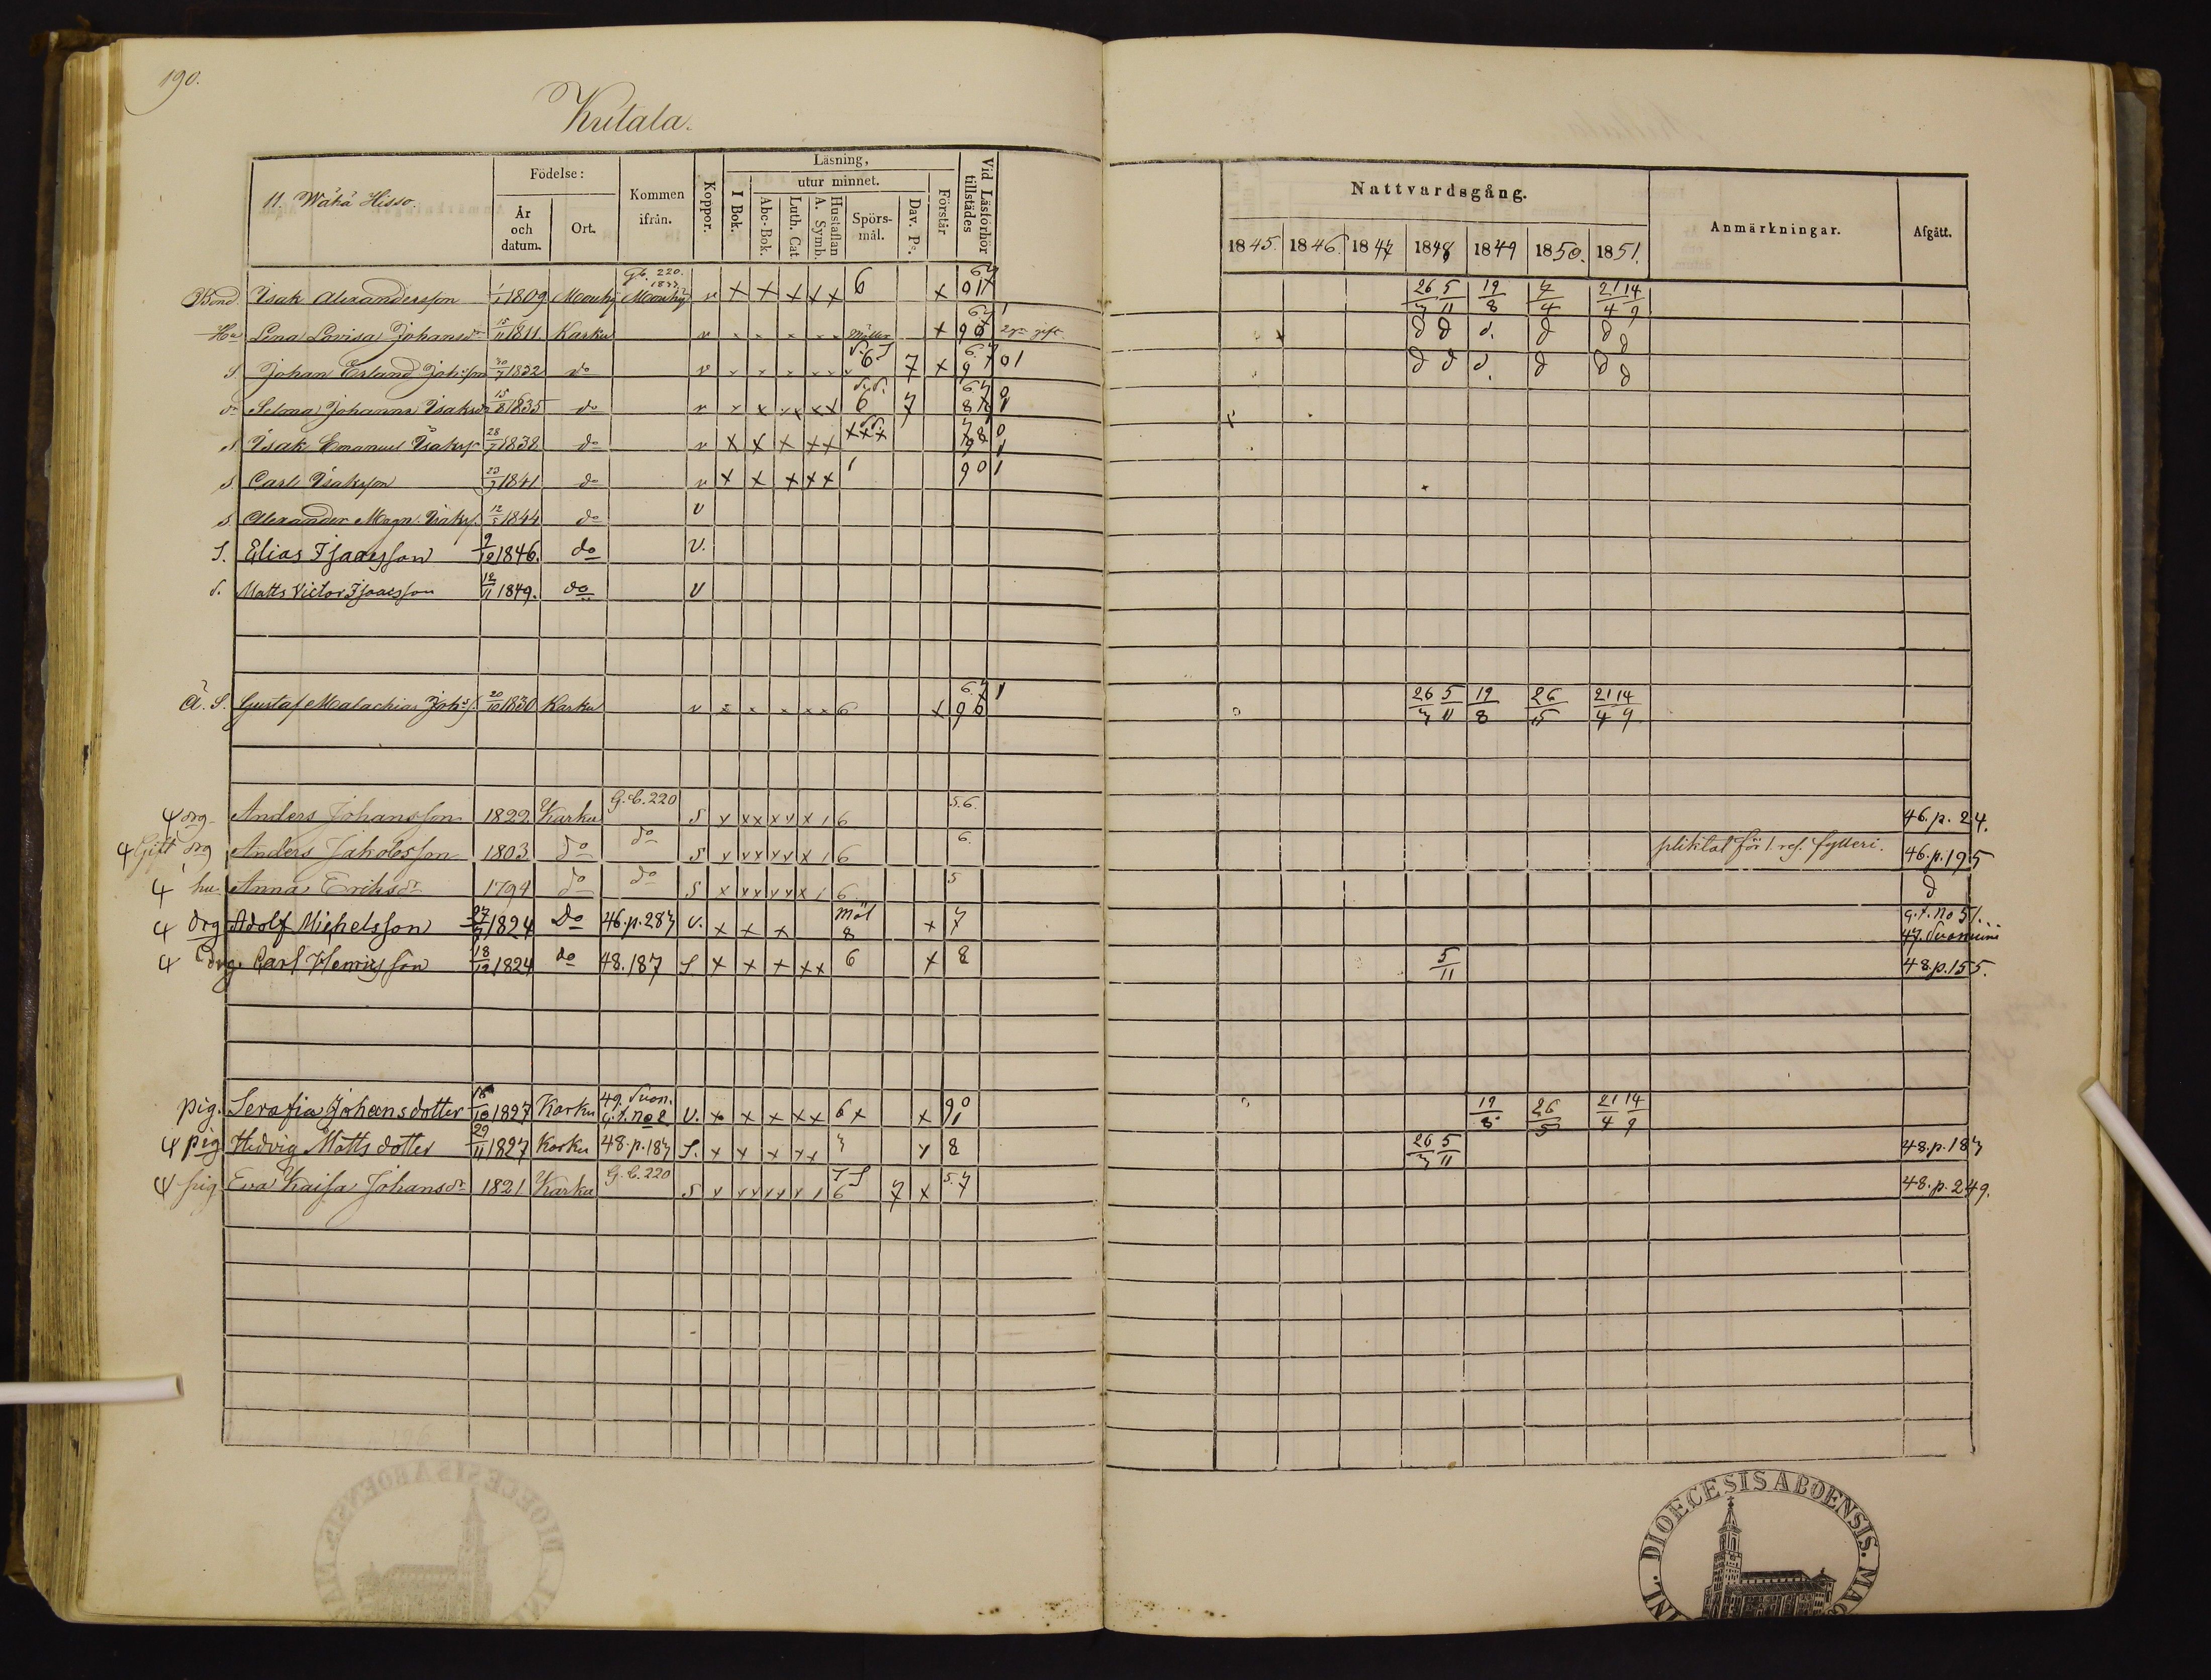 190.
Kutala.
11. Wähä Hisso.
Födelse:
År och datum.
Ort.
Kommen ifrån.
Koppor.
Läsning,
I Bok.
utur minnet.
Abc-Bok.
Luth. Cat
Hustaflan A. Symb.
Spörs-mål.
Dav. Ps.
Förstår
Vid Läsförhör tillstädes
Nattvardsgång.
1845. 1846. 1847 1848 1849 1850. 1851.
Anmärkningar.
Afgått.
Bond. Isak Alexandersson 1/1 1809 Mouhij Gb. 220. 1833 Mouhij v x x x x x 6 x 67 01 26/7 5/11 19/8 7/4 21/4 14/9
Hu Lena Lovisa Johansdr 15/11 1811. Karku v x 67 90 1 2dra gift d d d. d d d
S Johan Erland Johsson 30/7 1832 do v 6 7 x 67 9 01 d d d. d d d
dr Selma Johanna Isaksdr 15/8 1835 do v 6 7 67 8
s Isak Emanuel Isakss 28/7 1838 do v x x x x x x x x 78 0 9 1
s. Carl Isaksson 23/7 1841 do v x x x x x 1 901
s. Alexander Magn. Isakss. 12/5 1844 do v
S. Elias Isaacsson 9/12 1846. do v.
s. Matts Victor Isaacsson 12/11 1849. do v
Ä. S. Gustaf Malachias Johss. 20/10 1830 Karku v 6 x 67 1 90 26/7 5/11 19/8 26/5 21/4 14/9
drg Anders Johansson 1822 Karku G.b. 220 S x x x x x x 1 6 5.6. 46. p. 24.
Gift drg Anders Jakobsson 1803 do do S x x x x x x 1 6 6. pliktat för 1. res. fylleri. 46. p. 195
hu. Anna Eriksdr 1794 do do S x x x x x x 1 6 5 d
drg Adolf Michelsson 27/7 1824 Do 46. p. 287 v. x x x Mål 8 x 7 G.f. no 51. 47. Suoniemi
drg. Carl Henricsson 18/12 1824 do 48. 187 S x x x x x 6 x 8 5/11 48. p. 155.
pig. Serafia Johansdotter 18/10 1827 Karku 49. Suon. G.f. no 2 v. x x x x x 6 x x 90 1 19/8 26/5 21/4 14/9
pig Hedvig Mattsdotter 29/11 1827 Karku 48. p. 187 S. x x x x x 7 x 8 26/7 5/11 48. p. 187
pig Eva Kaisa Johansdr 1821 Karku G.b. 220 S x x x x x x 1 6 7 x 5.7 48. p. 249.
DIOECESIS ABOENSIS. MAG
INL.